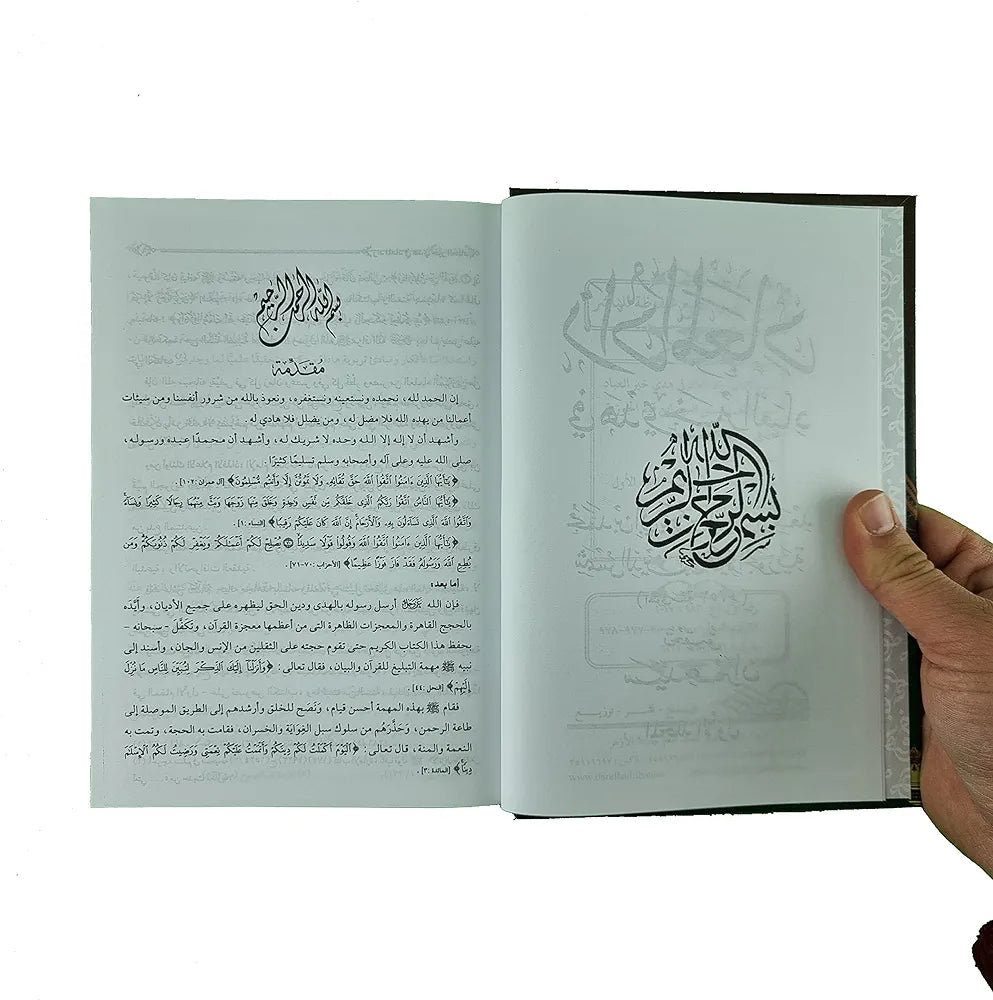 بسم الله الرحمن الرحيم
بسم الله الرحمن الرحيم
مُقدِّمة
إن الحمد لله، نحمده ونستعينه ونستغفره، ونعوذ بالله من شرور أنفسنا ومن سيئات
أعمالنا من يهده الله فلا مضل له، ومن يضلل فلا هادي له.
وأشهد أن لا إله إلا الله وحده لا شريك له، وأشهد أن محمدًا عبده ورسوله،
صلى الله عليه وعلى آله وأصحابه وسلم تسليمًا كثيرًا.
﴿يَٰٓأَيُّهَا ٱلَّذِينَ ءَامَنُوا۟ ٱتَّقُوا۟ ٱللَّهَ حَقَّ تُقَاتِهِۦ وَلَا تَمُوتُنَّ إِلَّا وَأَنتُم مُّسْلِمُونَ﴾ [آل عمران: ١٠٢].
﴿يَٰٓأَيُّهَا ٱلنَّاسُ ٱتَّقُوا۟ رَبَّكُمُ ٱلَّذِى خَلَقَكُم مِّن نَّفْسٍ وَٰحِدَةٍ وَخَلَقَ مِنْهَا زَوْجَهَا وَبَثَّ مِنْهُمَا رِجَالًا كَثِيرًا وَنِسَآءً
وَٱتَّقُوا۟ ٱللَّهَ ٱلَّذِى تَسَآءَلُونَ بِهِۦ وَٱلْأَرْحَامَ إِنَّ ٱللَّهَ كَانَ عَلَيْكُمْ رَقِيبًا﴾ [النساء: ١].
﴿يَٰٓأَيُّهَا ٱلَّذِينَ ءَامَنُوا۟ ٱتَّقُوا۟ ٱللَّهَ وَقُولُوا۟ قَوْلًا سَدِيدًا ۝ يُصْلِحْ لَكُمْ أَعْمَٰلَكُمْ وَيَغْفِرْ لَكُمْ ذُنُوبَكُمْ وَمَن
يُطِعِ ٱللَّهَ وَرَسُولَهُۥ فَقَدْ فَازَ فَوْزًا عَظِيمًا﴾ [الأحزاب: ٧٠-٧١].
أما بعد:
فإن الله عَزَّوَجَلَّ أرسل رسوله بالهدى ودين الحق ليظهره على جميع الأديان، وأيَّدَه
بالحجج القاهرة والمعجزات الظاهرة التى من أعظمها معجزة القرآن، وتكفَّلَ - سبحانه -
بحفظ هذا الكتاب الكريم حتى تقوم حجته على الثقلين من الإنس والجان، وأسند إلى
نبيه ﷺ مهمة التبليغ للقرآن والبيان، فقال تعالى: ﴿وَأَنزَلْنَآ إِلَيْكَ ٱلذِّكْرَ لِتُبَيِّنَ لِلنَّاسِ مَا نُزِّلَ
إِلَيْهِمْ﴾ [النحل: ٤٤].
فقام ﷺ بهذه المهمة أحسن قيام، ونَصَح للخلق وأرشدهم إلى الطريق الموصلة إلى
طاعة الرحمن، وحَذَّرَهُم من سلوك سبل الغِوَايَة والخسران، فقامت به الحجة، وتمت به
النعمة والمنة، قال تعالى: ﴿ٱلْيَوْمَ أَكْمَلْتُ لَكُمْ دِينَكُمْ وَأَتْمَمْتُ عَلَيْكُمْ نِعْمَتِى وَرَضِيتُ لَكُمُ ٱلْإِسْلَٰمَ
دِينًا﴾ [المائدة: ٣].